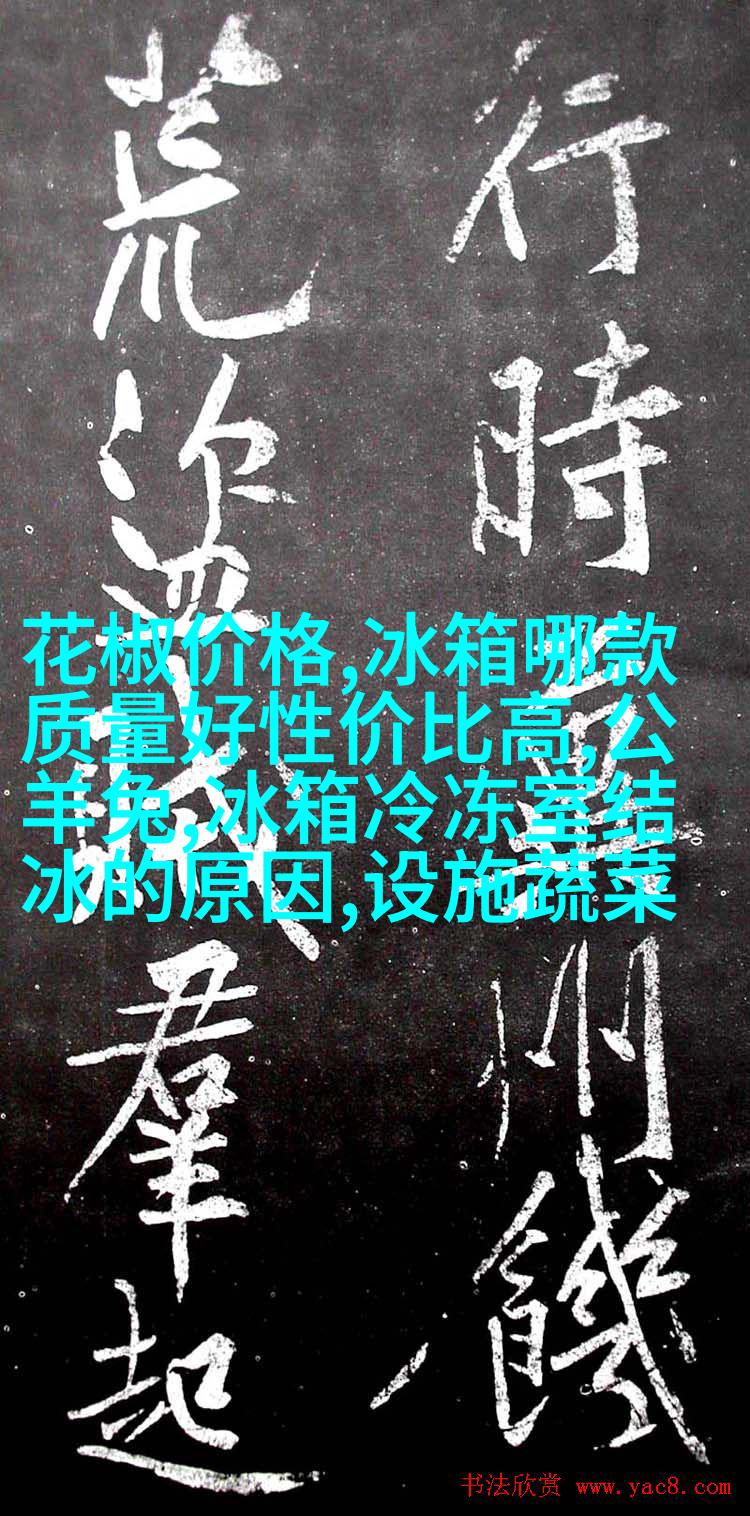 行時州饑
荒盜賊羣起
花椒价格,冰箱哪款
质量好性价比高,公
羊兔,冰箱冷冻室结
冰的原因,设施蔬菜
书法欣赏 www.yac8.com